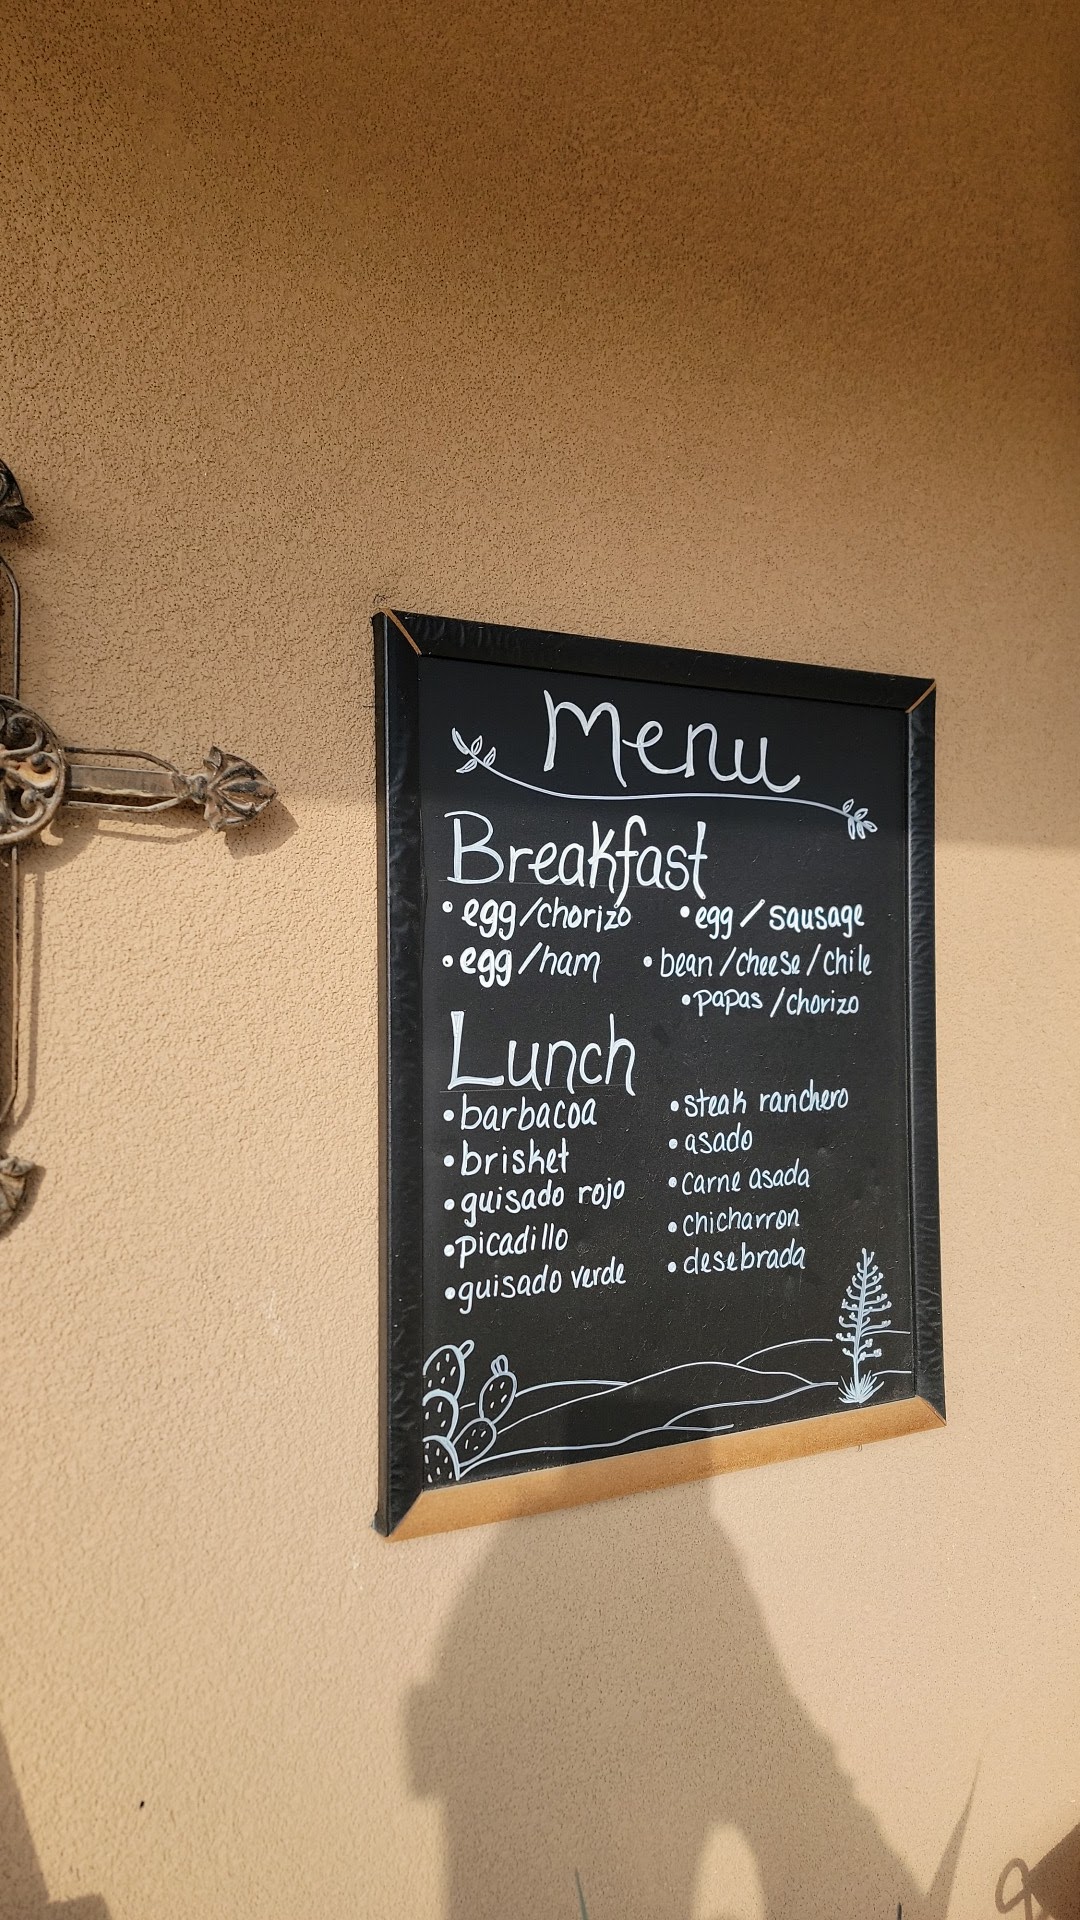 Menu
Breakfast
• egg/chorizo
• egg / sausage
• egg/ham
• bean/cheese/chile
• papas/chorizo
Lunch
• barbacoa
• brisket
• guisado rojo
• picadillo
• guisado verde
• steak ranchero
• asado
• carne asada
• chicharron
• desebrada